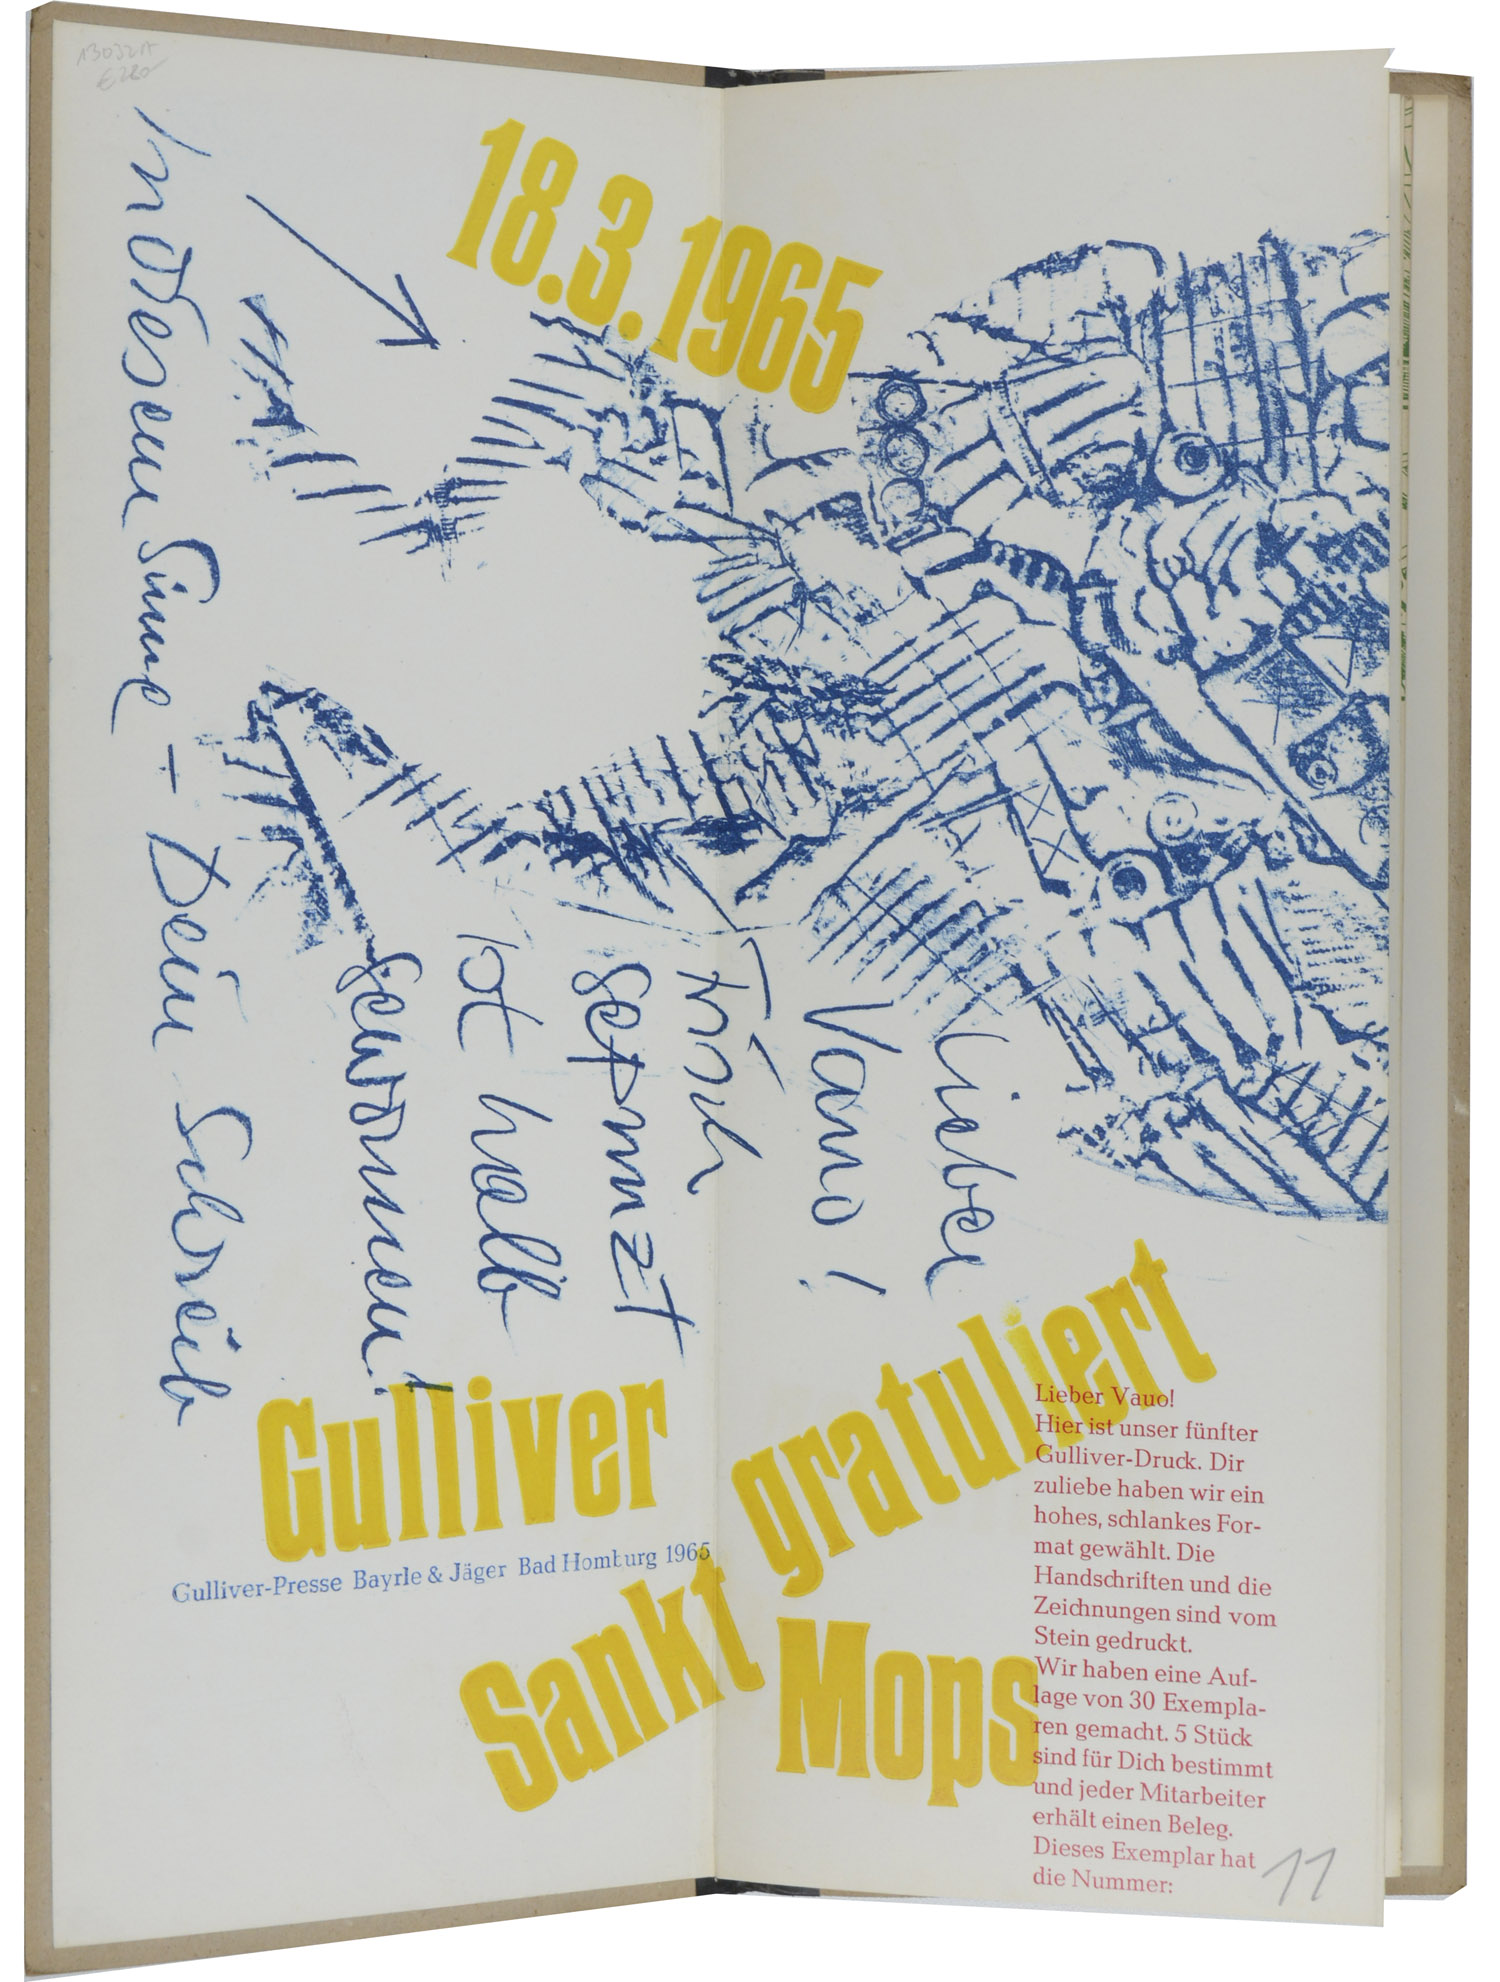 13032A
18.3.1965
Lieber
Vauo!
Früh
gepunzt
ist halb
gewonnen!
In diesem Sinne – Dein Schreib
Gulliver
gratuliert
Sankt
Mops
Gulliver-Presse Bayrle & Jäger Bad Homburg 1965
Lieber Vauo!
Hier ist unser fünfter
Gulliver-Druck. Dir
zuliebe haben wir ein
hohes, schlankes For-
mat gewählt. Die
Handschriften und die
Zeichnungen sind vom
Stein gedruckt.
Wir haben eine Auf-
lage von 30 Exempla-
ren gemacht. 5 Stück
sind für Dich bestimmt
und jeder Mitarbeiter
erhält einen Beleg.
Dieses Exemplar hat
die Nummer: 11